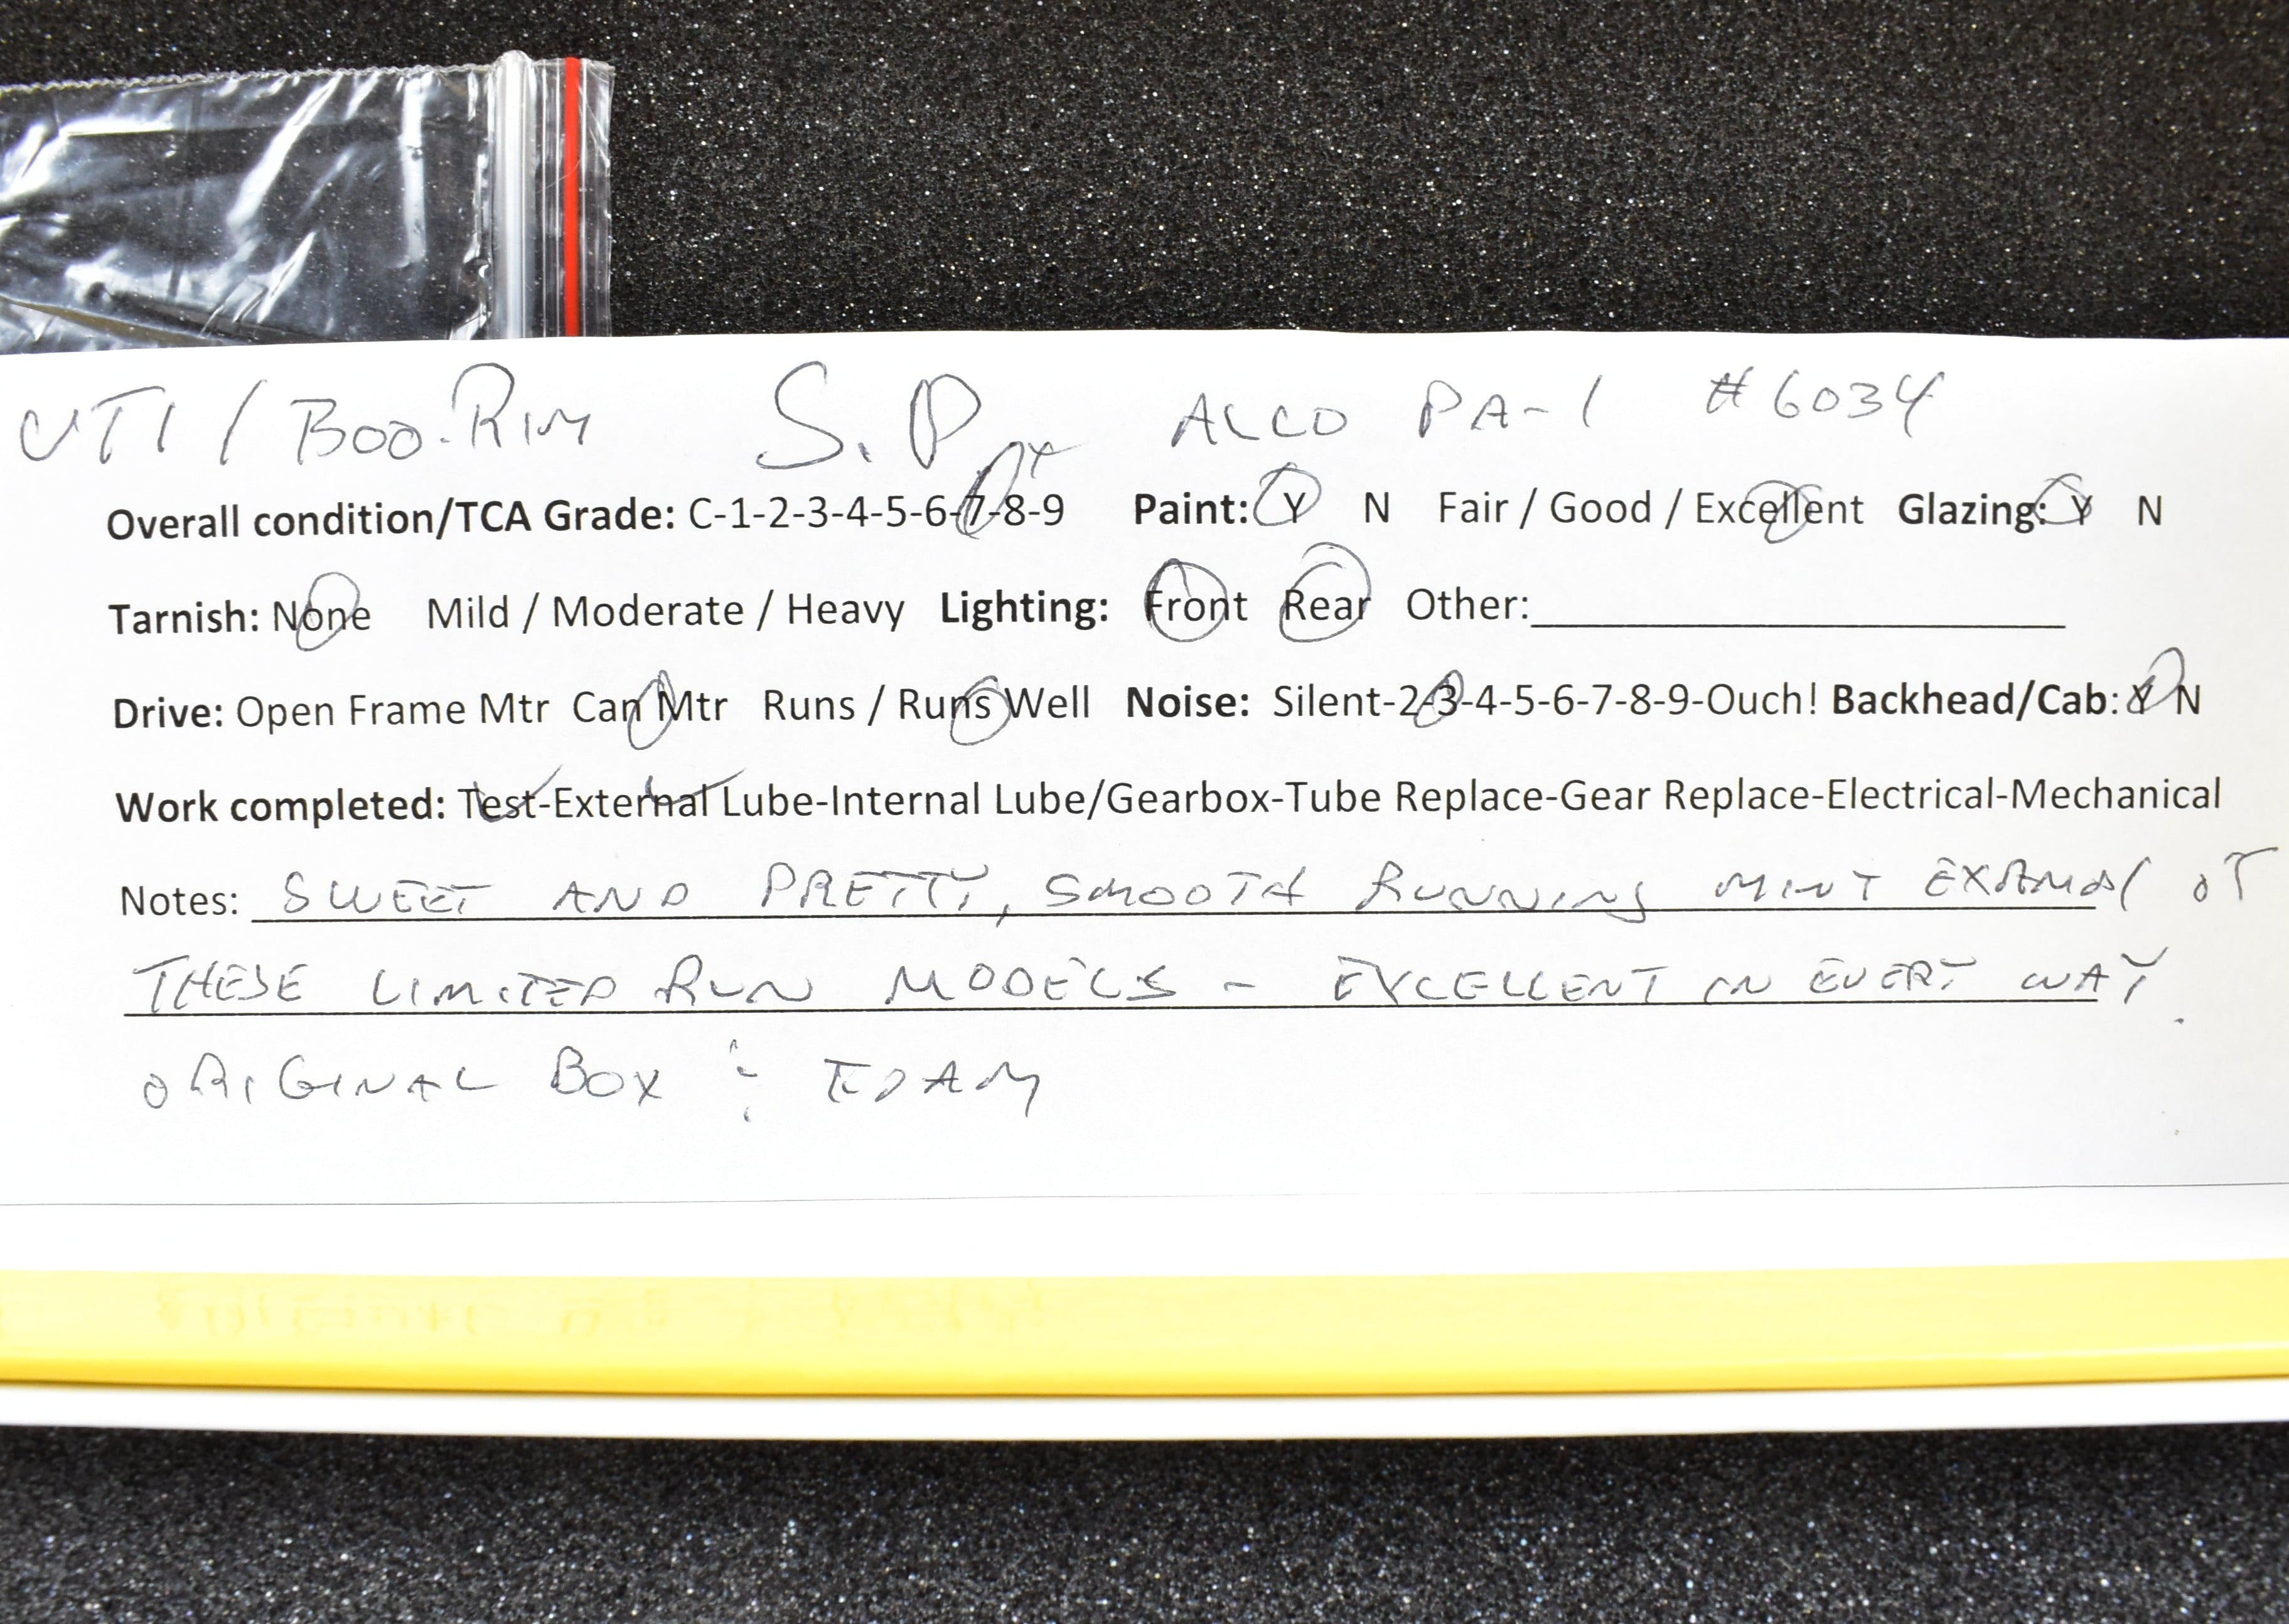 UTI / BOO-RIM S.P. ALCO PA-1 #6034
Overall condition/TCA Grade: C-1-2-3-4-5-6-7-8-9 Paint: Y N Fair / Good / Excellent Glazing: Y N
Tarnish: None Mild / Moderate / Heavy Lighting: Front Rear Other:
Drive: Open Frame Mtr Can Mtr Runs / Runs Well Noise: Silent-2-3-4-5-6-7-8-9-Ouch! Backhead/Cab: Y N
Work completed: Test-External Lube-Internal Lube/Gearbox-Tube Replace-Gear Replace-Electrical-Mechanical
Notes: SWEET AND PRETTY, SMOOTH RUNNING MINT OF
THESE LIMITED RUN MODELS - EXCELLENT IN EVERY WAY.
ORIGINAL BOX & FOAM